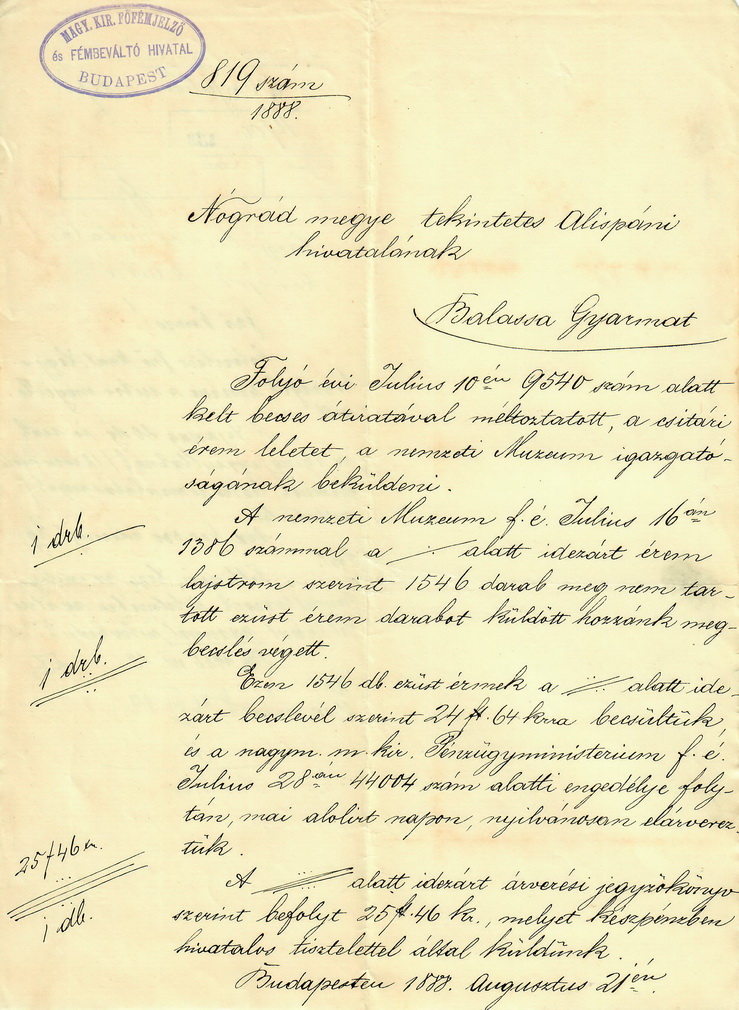 MAGY. KIR. FŐFÉMJELZŐ
és FÉMBEVÁLTÓ HIVATAL
BUDAPEST
819 szám
1888.
Nógrád megye tekintetes Alispáni
hivatalának
Balassa Gyarmat
Folyó évi Julius 10én 9540 szám alatt
kelt becses átiratával méltoztatott, a csitári
érem leletet, a nemzeti Muzeum igazgató-
ságának beküldeni.
A nemzeti Muzeum f. é. Julius 16án
1 drb.
1386 számmal a ./. alatt idezárt érem
lajstrom szerint 1546 darab meg nem tar-
tott ezüst érem darabot küldött hozzánk meg-
becslés végett.
1 drb.
Ezen 1546 db. ezüst érmek a .//. alatt ide-
zárt becslevél szerint 24 ft. 64 krra becsültük,
és a nagym. m. kir. Pénzügyministerium f. é.
Julius 28án 44004 szám alatti engedélye foly-
tán, mai alolirt napon, nyilvánosan elárverez-
tük.
25 f 46 kr.
1 db.
A .///. alatt idezárt árverési jegyzökönyv
szerint befolyt 25 ft. 46 kr., melyet készpénzben
hivatalos tisztelettel által küldünk.
Budapesten 1888. Augusztus 21én.